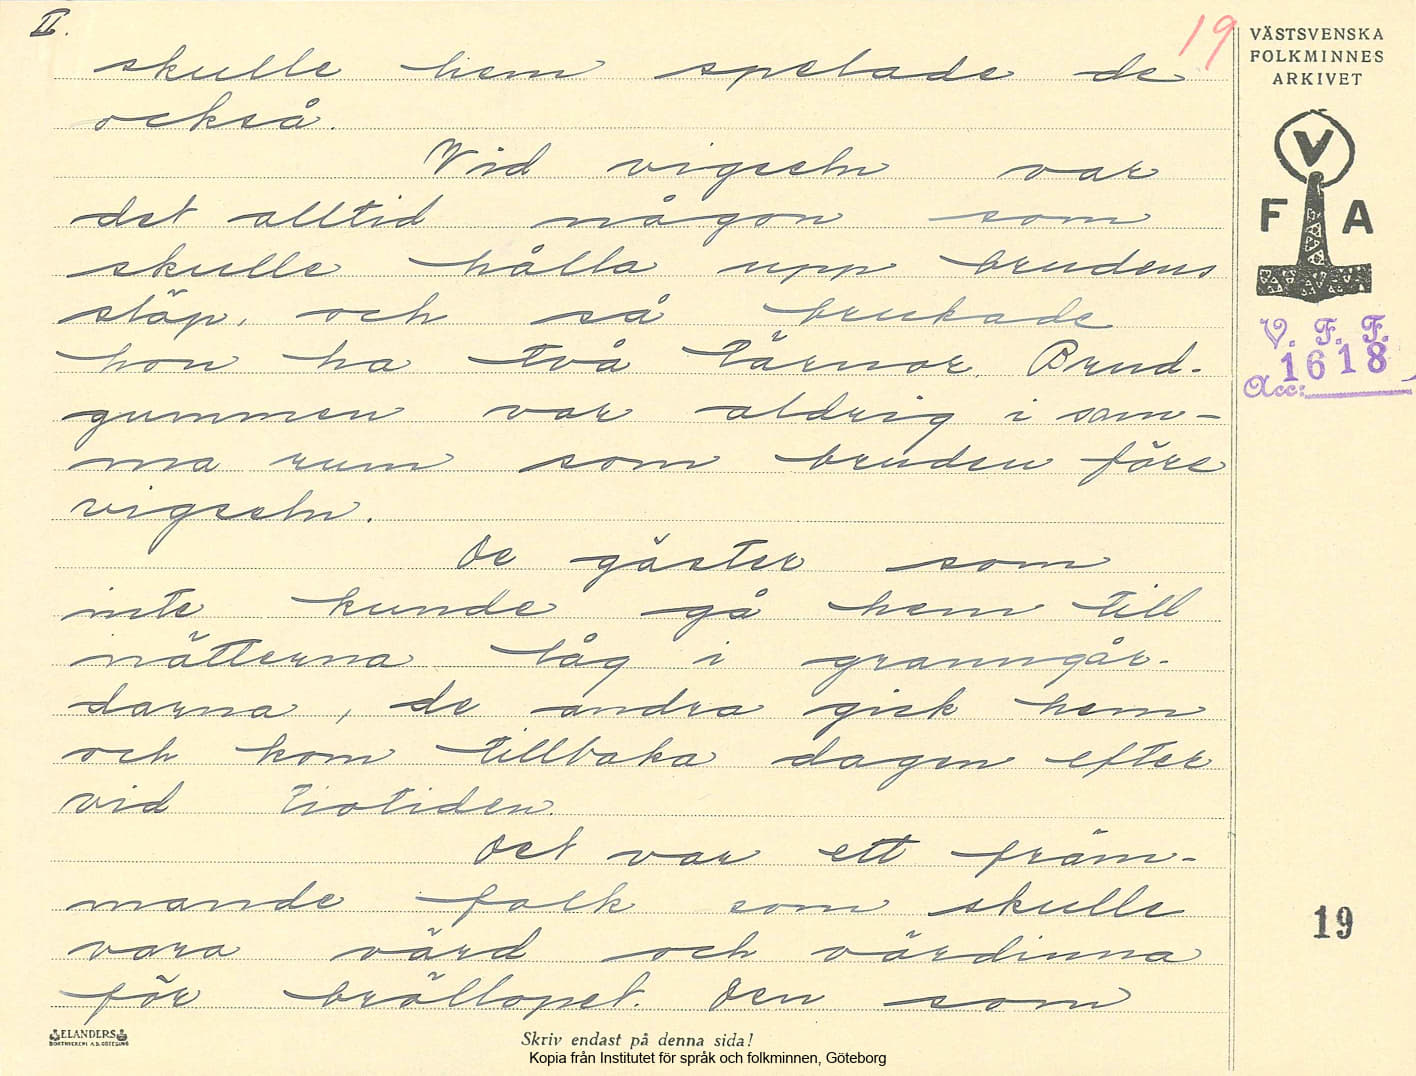 II.
19
skulle hem spelade de
också.
Vid vigseln var
det alltid någon som
skulle hålla upp brudens
släp, och så brukade
hon ha två tärnor. Brud-
gummen var aldrig i sam-
ma rum som bruden före
vigseln.
De gäster som
inte kunde gå hem till
nätterna låg i granngår-
darna, de andra gick hem
och kom tillbaka dagen efter
vid tiotiden.
Det var ett främ-
mande folk som skulle
vara värd och värdinna
för bröllopet. Den som
VÄSTSVENSKA
FOLKMINNES
ARKIVET
V
F A
V. F. F.
1618
Acc:
19
ELANDERS
BOKTRYCKERI A.B. GÖTEBORG
Skriv endast på denna sida!
Kopia från Institutet för språk och folkminnen, Göteborg